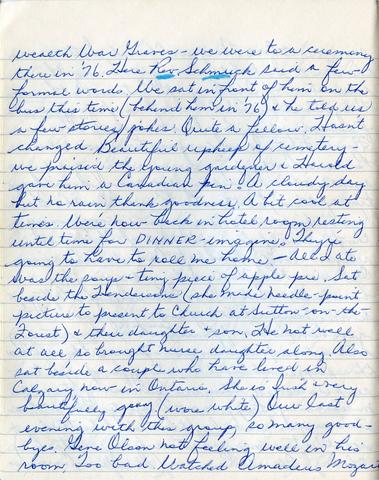 wealth War Graves - we were to a ceremony
there in '76. Here Rev Schmuck said a few
formal words. We sat in front of him on the
bus this time (behind him in '76) & he told us
a few stories/jokes. Quite a fellow. Hasn't
changed. Beautiful upkeep of cemetery -
we praised the young gardener & Harold
gave him a Canadian pin. A cloudy day
but no rain thank goodness. A bit cool at
times. We're now back in hotel room resting
until time for DINNER - imagine! They're
going to have to roll me home - All I ate
was the soup & tiny piece of apple pie. Sat
beside the Hendersons (she made needle-point
picture to present to Church at Sutton-on-the-
Forest) & their daughter & son. He not well
at all so brought nurse daughter along. Also
sat beside a couple who have lived in
Calgary now in Ontario. She is Irish & very
beautifully gray (wore white) Our last
evening with this group, so many good-
byes. Gene Olson not feeling well in his
room. Too bad. Watched Amadeus Mozart